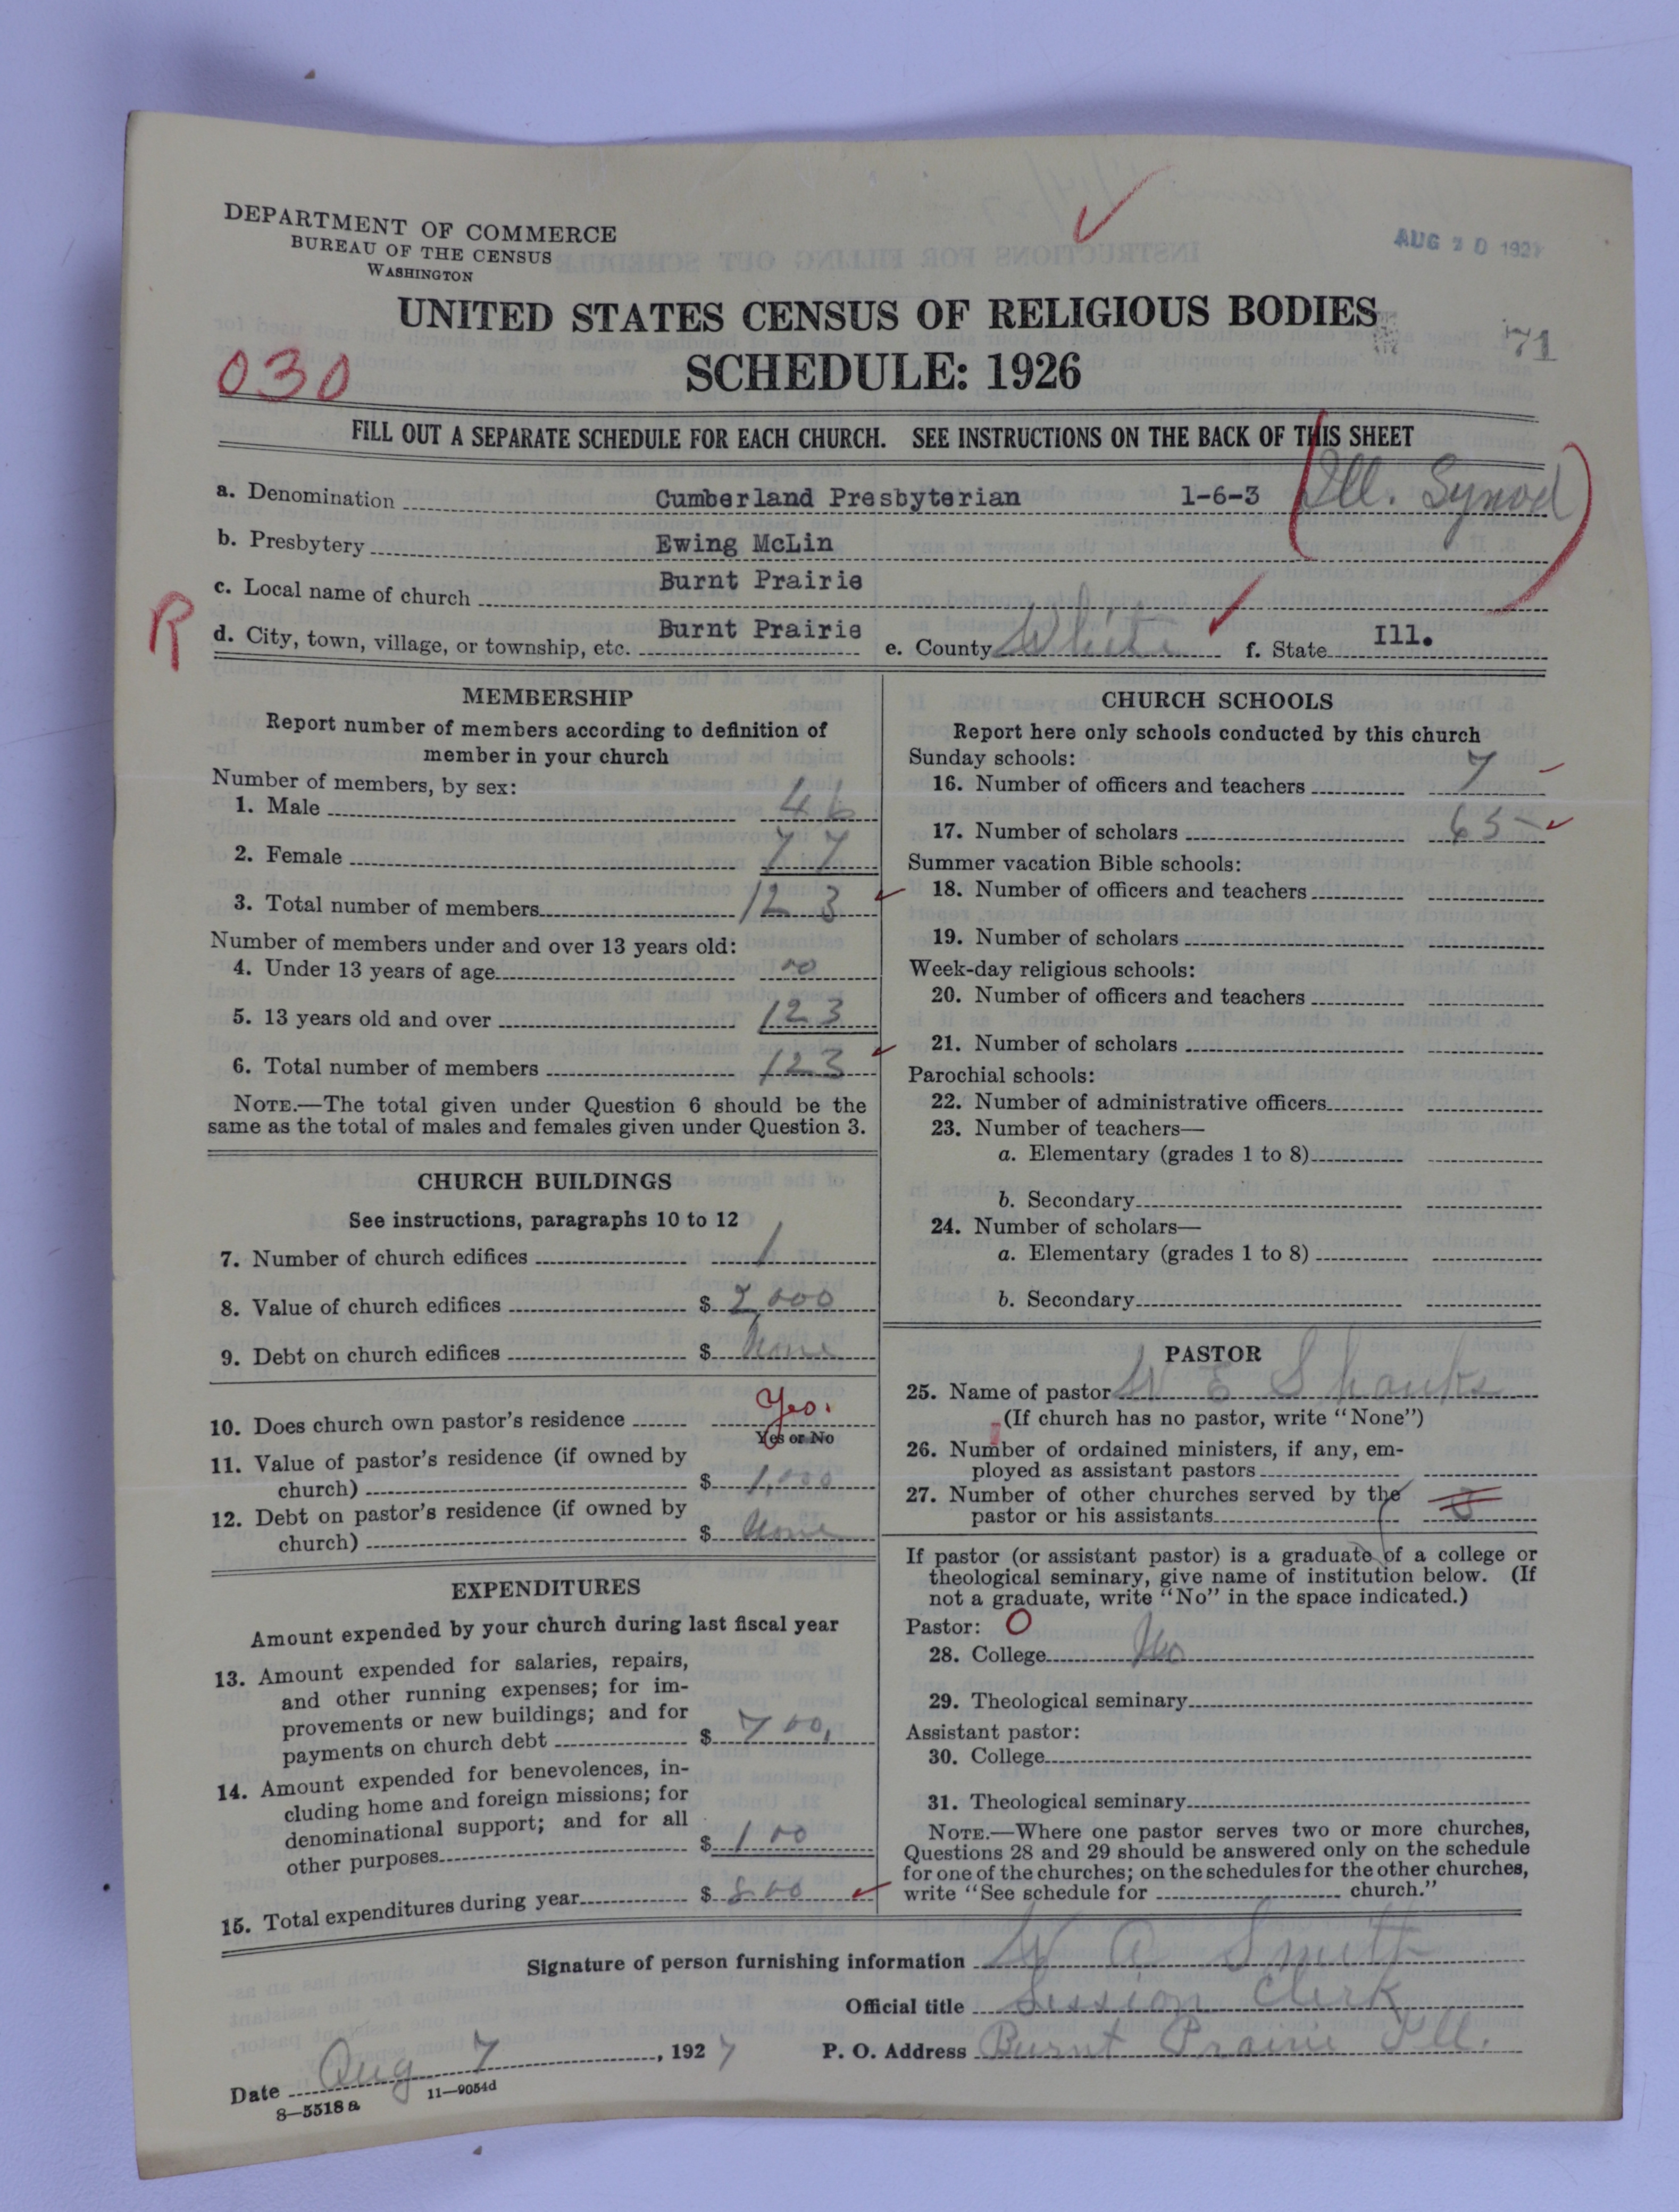 DEPARTMENT OF COMMERCE
BUREAU OF THE CENSUS
WASHINGTON
AUG 30 1927
UNITED STATES CENSUS OF RELIGIOUS BODIES
SCHEDULE: 1926
71
030
FILL OUT A SEPARATE SCHEDULE FOR EACH CHURCH. SEE INSTRUCTIONS ON THE BACK OF THIS SHEET
a. Denomination Cumberland Presbyterian 1-6-3 (Ill. Synod)
b. Presbytery Ewing McLin
c. Local name of church Burnt Prairie
R
d. City, town, village, or township, etc. Burnt Prairie e. County White f. State Ill.
MEMBERSHIP
Report number of members according to definition of
member in your church
Number of members, by sex:
1. Male 46
2. Female 77
3. Total number of members 123
Number of members under and over 13 years old:
4. Under 13 years of age 00
5. 13 years old and over 123
6. Total number of members 123
NOTE.—The total given under Question 6 should be the
same as the total of males and females given under Question 3.
CHURCH BUILDINGS
See instructions, paragraphs 10 to 12
7. Number of church edifices 1
8. Value of church edifices $ 2,000
9. Debt on church edifices $ None
10. Does church own pastor's residence Yes.
Yes or No
11. Value of pastor's residence (if owned by
church) $ 1,000
12. Debt on pastor's residence (if owned by
church) $ None
EXPENDITURES
Amount expended by your church during last fiscal year
13. Amount expended for salaries, repairs,
and other running expenses; for im-
provements or new buildings; and for
payments on church debt $ 700.
14. Amount expended for benevolences, in-
cluding home and foreign missions; for
denominational support; and for all
other purposes $ 100
15. Total expenditures during year $ 800
CHURCH SCHOOLS
Report here only schools conducted by this church
Sunday schools:
16. Number of officers and teachers 7
17. Number of scholars 65
Summer vacation Bible schools:
18. Number of officers and teachers
19. Number of scholars
Week-day religious schools:
20. Number of officers and teachers
21. Number of scholars
Parochial schools:
22. Number of administrative officers
23. Number of teachers—
a. Elementary (grades 1 to 8)
b. Secondary
24. Number of scholars—
a. Elementary (grades 1 to 8)
b. Secondary
PASTOR
25. Name of pastor W E Shanks
(If church has no pastor, write "None")
26. Number of ordained ministers, if any, em-
ployed as assistant pastors
27. Number of other churches served by the
pastor or his assistants
If pastor (or assistant pastor) is a graduate of a college or
theological seminary, give name of institution below. (If
not a graduate, write "No" in the space indicated.)
Pastor: O
28. College No
29. Theological seminary
Assistant pastor:
30. College
31. Theological seminary
NOTE.—Where one pastor serves two or more churches,
Questions 28 and 29 should be answered only on the schedule
for one of the churches; on the schedules for the other churches,
write "See schedule for church."
Signature of person furnishing information W A Smith
Official title Session Clerk
Date Aug 7, 1927 P. O. Address Burnt Prairie Ill.
8—5518a 11—9054d